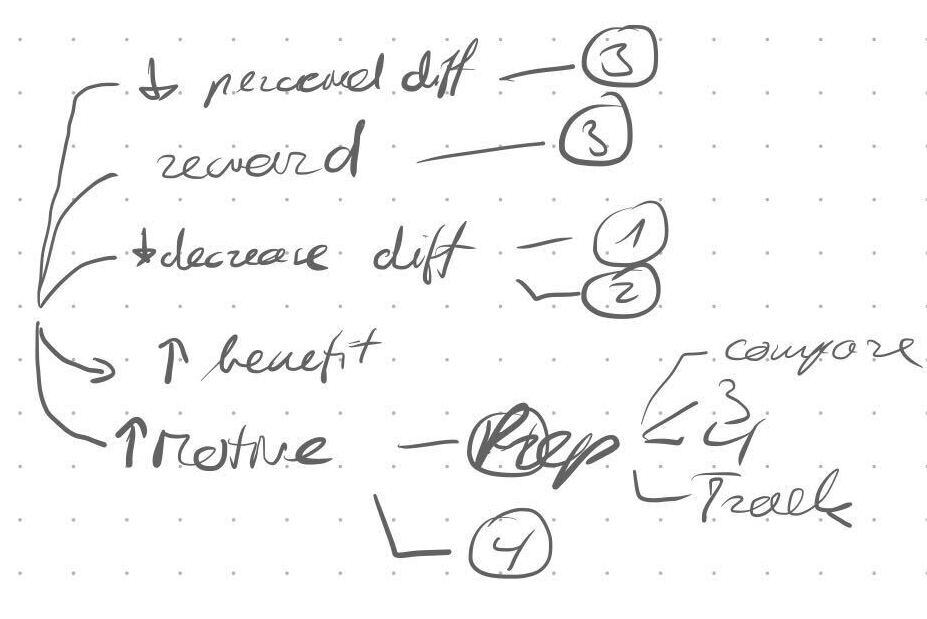 ↓ perceived diff — 3
reward — 3
↓ decrease diff — 1
2
↑ benefit
compare
↑ Motive — Prep < 3
4
Track
4